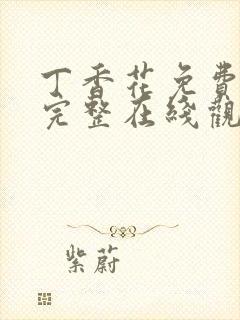 丁香花免費
完整在綫觀
紫蔚